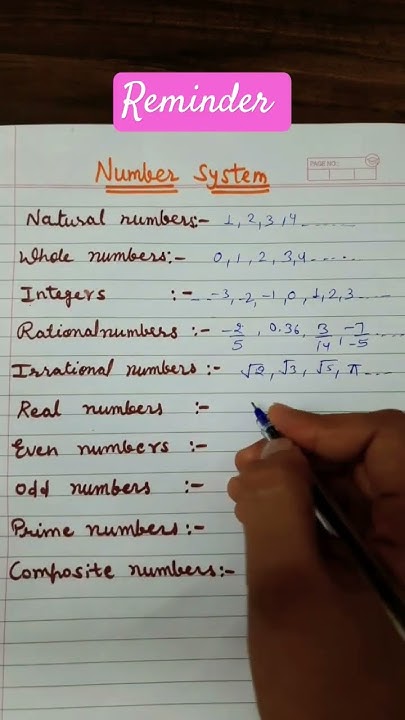 Reminder
PAGE NO.:
Number System
Natural numbers:- 1, 2, 3, 4 ........
Whole numbers:- 0, 1, 2, 3, 4 .....
Integers :- .. -3, -2, -1, 0, 1, 2, 3 .....
Rational numbers :- -2/5, 0.36, 3/14, -7/-5 ....
Irrational numbers :- √2, √3, √5, π ....
Real numbers :-
Even numbers :-
Odd numbers :-
Prime numbers :-
Composite numbers:-